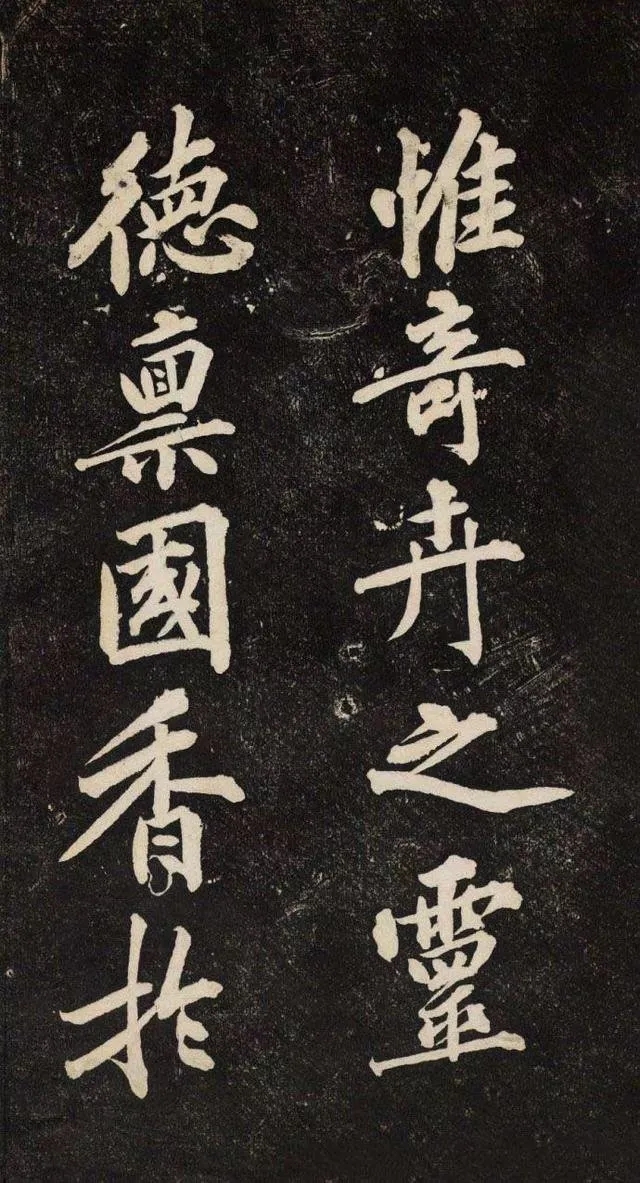 惟奇卉之靈
德稟國香扵